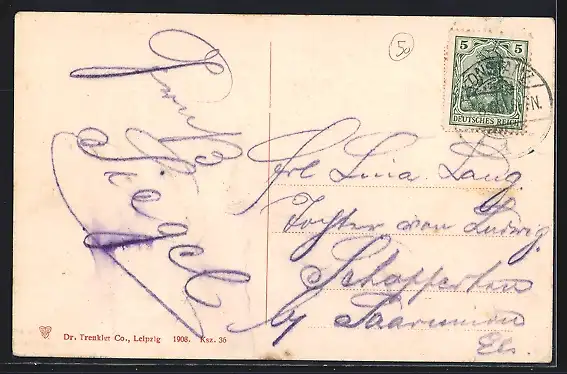 50
5 5
DEUTSCHES REICH
Gruß
Siegel
Frl Lina Lang
Tochter von Ludwig
Schopperten
by Saarunion
Els.
Dr. Trenkler Co., Leipzig 1908. Ksz. 36